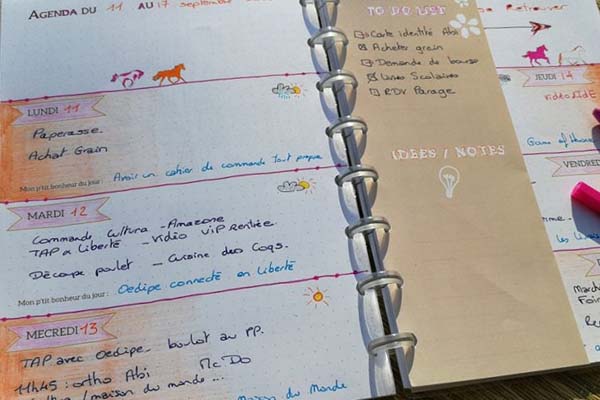 AGENDA DU 11 AU 17 septembre
LUNDI 11
Paperasse
Achat Grain
Mon p'tit bonheur du jour : Avoir un cahier de commande tout propre
MARDI 12
Commande Cultura - Amazone
TAP a Liberté - Vidéo VIP rentrée
Découpe poulet - Cuisine des Coqs.
Mon p'tit bonheur du jour : Oedipe connecté en liberté
MECREDI 13
TAP avec Oedipe - boulot au PP.
11h45 : ortho Abi Mc Do
/maison du monde ...
Maison du Monde
TO DO LIST
Carte identité Abi
Acheter grain
Demande de bourse
Livres Scolaires
RDV Parage
IDEES / NOTES
Retrouver
JEUDI 14
Game of
VENDRE
les
March
Foin